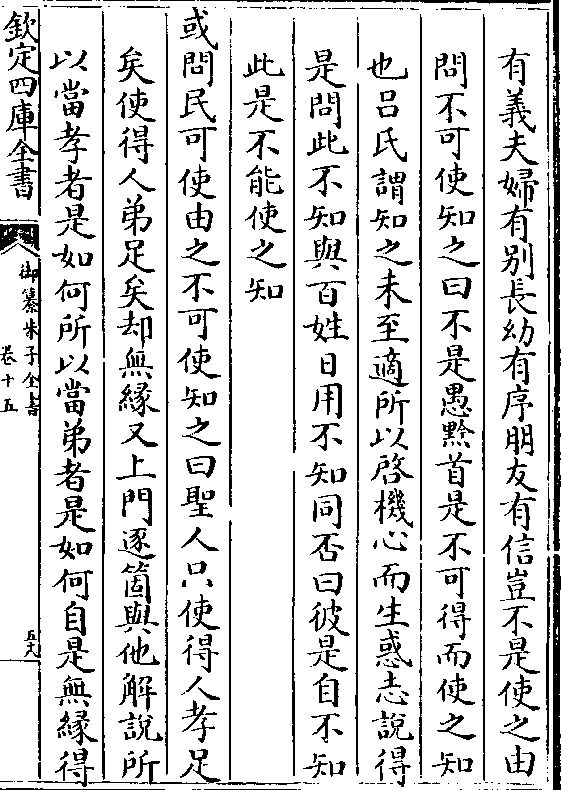 有義夫婦有别長幼有序朋友有信豈不是使之由
問不可使知之曰不是愚黔首是不可得而使之知
也吕氏謂知之未至適所以啓機心而生惑志說得
是問此不知與百姓日用不知同否曰彼是自不知
此是不能使之知
或問民可使由之不可使知之曰聖人只使得人孝足
矣使得人弟足矣却無緣又上門逐箇與他解說所
以當孝者是如何所以當弟者是如何自是無緣得
欽定四庫全書
御纂朱子全書
卷十五